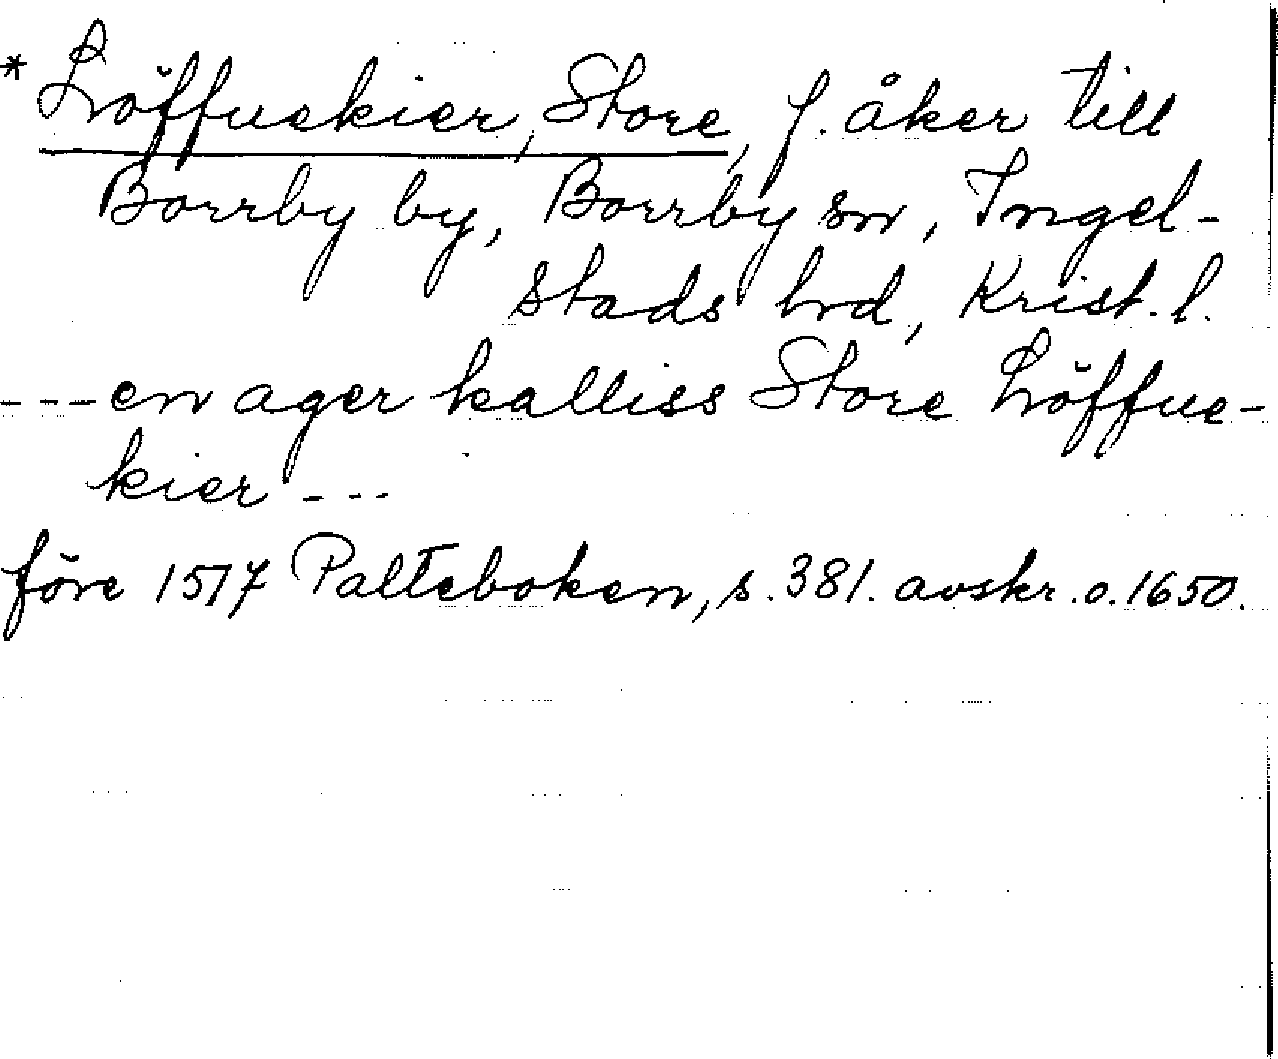 * Löffuekier, Store, f. åker till
Borrby by, Borrby sn, Ingel-
stads hrd, Krist. l.
--- en ager kalliss Store Löffue-
kier ---
före 1517 Palteboken, s. 381. avskr. o. 1650.